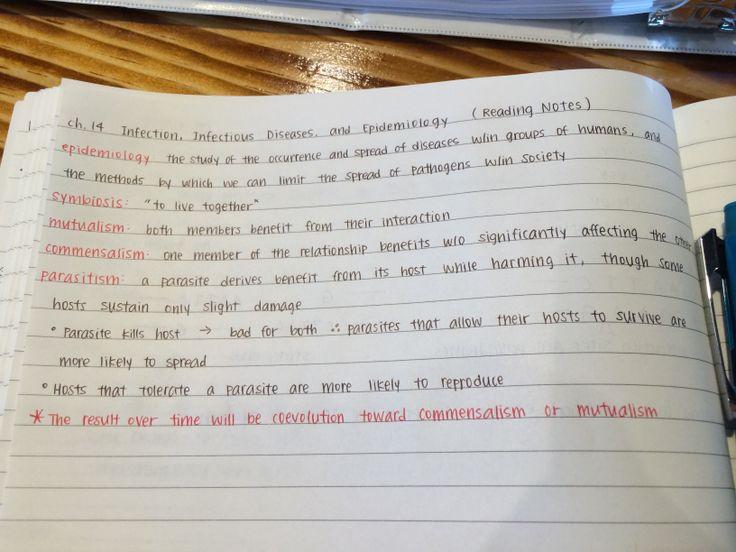 Ch. 14 Infection, Infectious Diseases, and Epidemiology (Reading Notes)
epidemiology the study of the occurrence and spread of diseases w/in groups of humans, and
the methods by which we can limit the spread of pathogens w/in sosiety
symbiosis: "to live together"
mutualism: both members benefit from their interaction
commensalism: one member of the relationship benefits w/o significantly affecting the other
parasitism: a parasite derives benefit from its host while harming it, though some
hosts sustain only slight damage
° Parasite kills host → bad for both ∴ parasites that allow their hosts to survive are
more likely to spread
° Hosts that tolerate a parasite are more likely to reproduce
* The result over time will be coevolution toward commensalism or mutualism